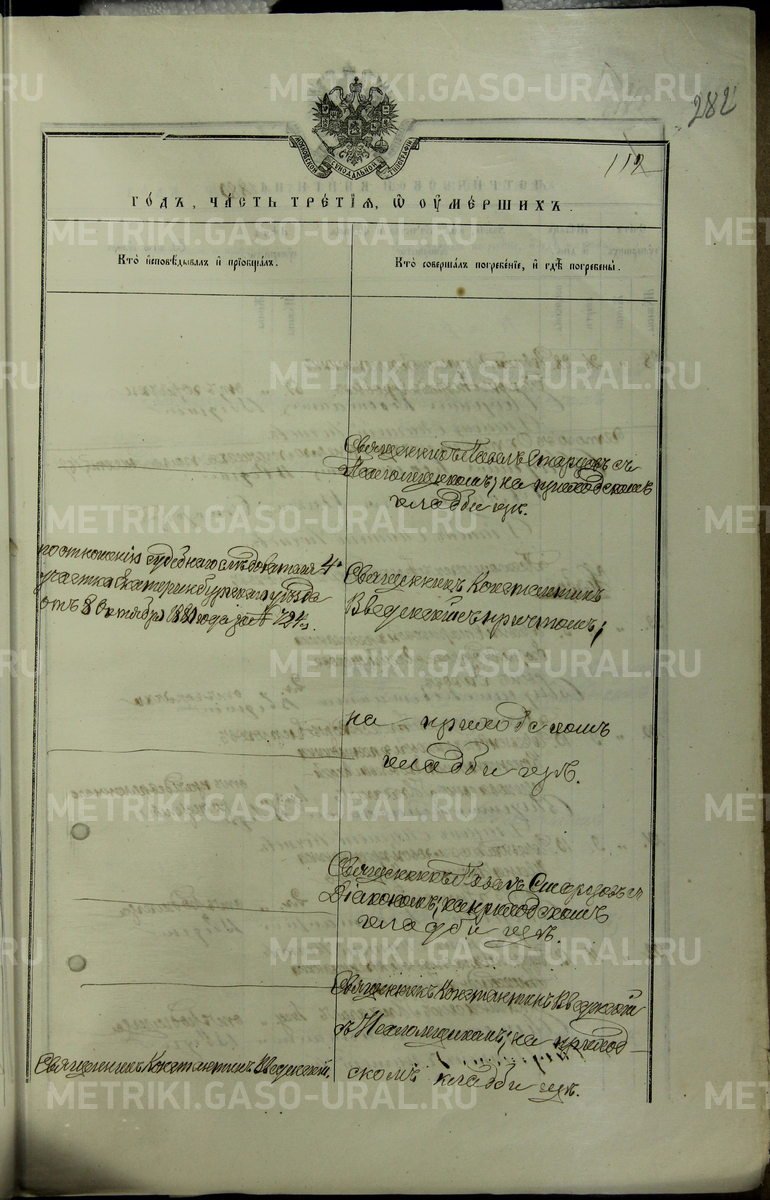 282
МОСКОВСКОЙ СѴНОДАЛЬНОЙ ТИПОГРАФІИ
112
ГО́ДЪ, ЧА́СТЬ ТРЕ́ТІѦ, Ѡ ОУ҆МЕ́РШИХЪ.
Кто̀ и҆сповѣ́дывалъ и҆ прїѡбща́лъ.
Кто̀ соверша́лъ погребе́нїе, и҆ гдѣ̀ погребены̀.
Священникъ Павелъ Старцовъ съ
Псаломщикомъ, на приходскомъ
кладбищѣ.
по отношенію судебнаго слѣдователя 4го
участка Екатеринбургскаго уѣзда
отъ 8 Октября 1881 года за №
Священникъ Константинъ
Введенскій съ причтомъ,
на приходскомъ
кладбищѣ.
Священникъ Павелъ Старцовъ съ
Діакономъ, на приходскомъ
кладбищѣ.
Священникъ Константинъ Введенскій
съ Псаломщикомъ, на приход
Священникъ Константинъ Введенскій.
скомъ кладбищѣ.
METRIKI.GASO-URAL.RU